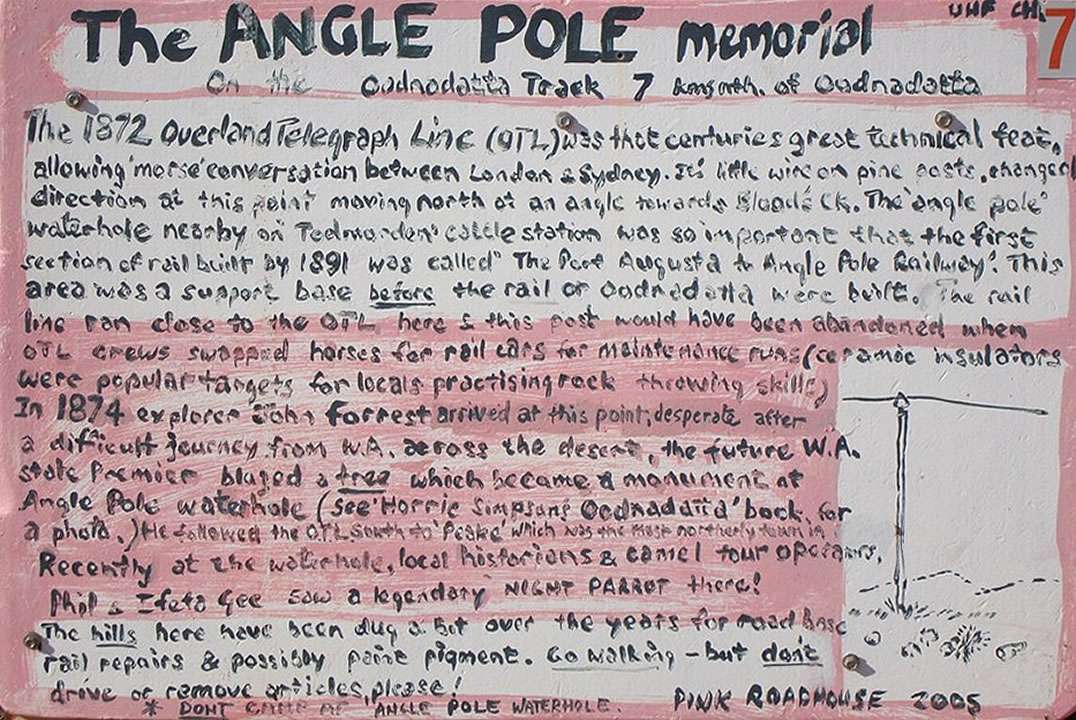 The ANGLE POLE memorial
UHF CH. 7
On the Oodnadatta Track 7 kms nth. of Oodnadatta
The 1872 Overland Telegraph Line (OTL) was that centuries great technical feat,
allowing 'morse' conversation between London & Sydney. It's little wire on pine posts, changed
direction at this point moving north at an angle towards Bloods Ck. The 'angle pole'
waterhole nearby on 'Todmorden' cattle station was so important that the first
section of rail built by 1891 was called "The Port Augusta to Angle Pole Railway". This
area was a support base before the rail or Oodnadatta were built. The rail
line ran close to the OTL here & this post would have been abandoned when
OTL crews swapped horses for rail cars for maintenance runs (ceramic insulators
were popular targets for locals practising rock throwing skills)
In 1874 explorer John Forrest arrived at this point, desperate after
a difficult journey from W.A. across the desert, the future W.A.
state Premier blazed a tree which became a monument at
Angle Pole waterhole (see 'Horrie Simpsons Oodnadatta' book, for
a photo.) He followed the OTL South to 'Peake' which was the most northerly town in
Recently at the waterhole, local historians & camel tour operators,
Phil & Ifeta Gee saw a legendary NIGHT PARROT there!
The hills here have been dug a bit over the years for road base
rail repairs & possibly paint pigment. Go walking - but don't
drive or remove articles, please!
* DONT CAMP AT 'ANGLE POLE WATERHOLE.
PINK ROADHOUSE 2005